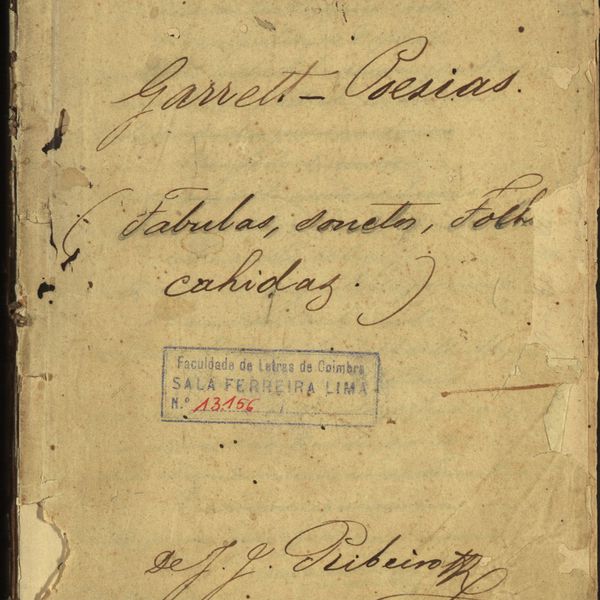 Garrett - Poesias.
(Fabulas, sonetos, Folh
cahidas.)
Faculdade de Letras de Coimbra
SALA FERREIRA LIMA
N.º 13.156
de J. J. Ribeiro